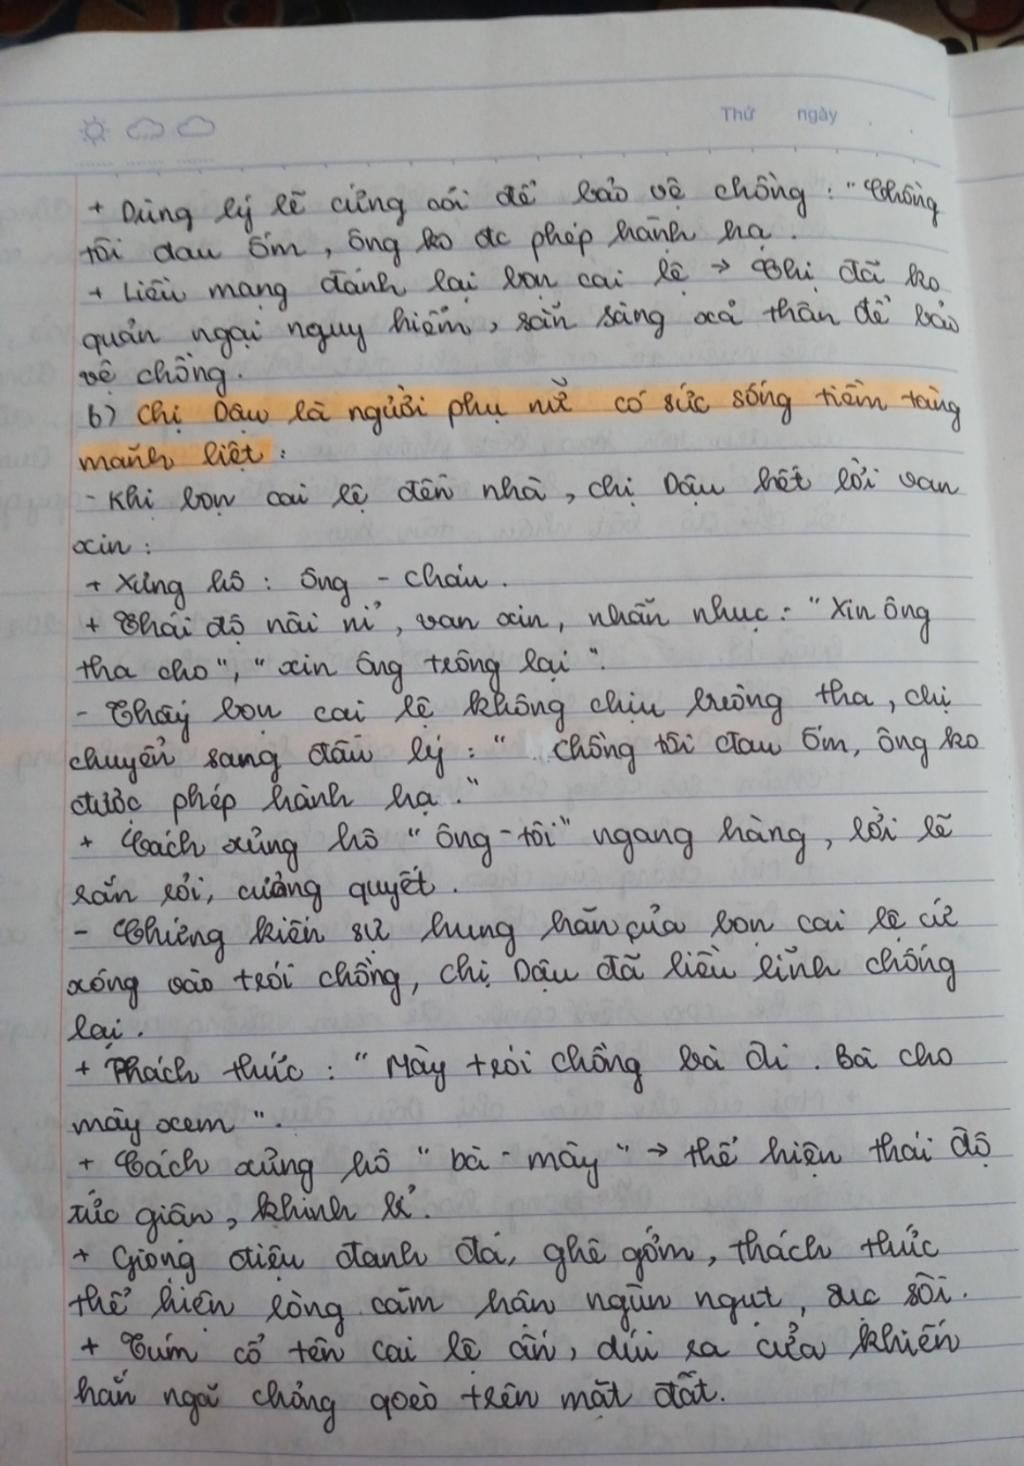 Thứ ngày
+ Dùng lý lẽ cứng cỏi để bảo vệ chồng : "Chồng
tôi đau ốm, ông ko đc phép hành hạ.
+ Liều mạng đánh lại bọn cai lệ → Chị đã ko
quản ngại nguy hiểm, sẵn sàng xả thân để bảo
vệ chồng.
b) Chị Dậu là người phụ nữ có sức sống tiềm tàng
mãnh liệt :
- Khi bọn cai lệ đến nhà, chị Dậu hết lời van
xin :
+ Xưng hô : Ông - cháu.
+ Thái độ nài nỉ, van xin, nhẫn nhục : "Xin ông
tha cho", "xin ông trông lại".
- Thấy bọn cai lệ không chịu buông tha, chị
chuyển sang đấu lý : " Chồng tôi đau ốm, ông ko
được phép hành hạ."
+ Cách xưng hô "ông - tôi" ngang hàng, lời lẽ
rắn rỏi, cương quyết.
- Chứng kiến sự hung hãn của bọn cai lệ cứ
xông vào trói chồng, chị Dậu đã liều lĩnh chống
lại.
+ Thách thức : "Mày trói chồng bà đi. Bà cho
mày xem".
+ Cách xưng hô "bà - mày" → thể hiện thái độ
tức giận, khinh bỉ.
+ Giọng điệu đanh đá, ghê gớm, thách thức
thể hiện lòng căm hận ngùn ngụt, sục sôi.
+ Túm cổ tên cai lệ ấn, dúi ra cửa khiến
hắn ngã chỏng qoèo trên mặt đất.